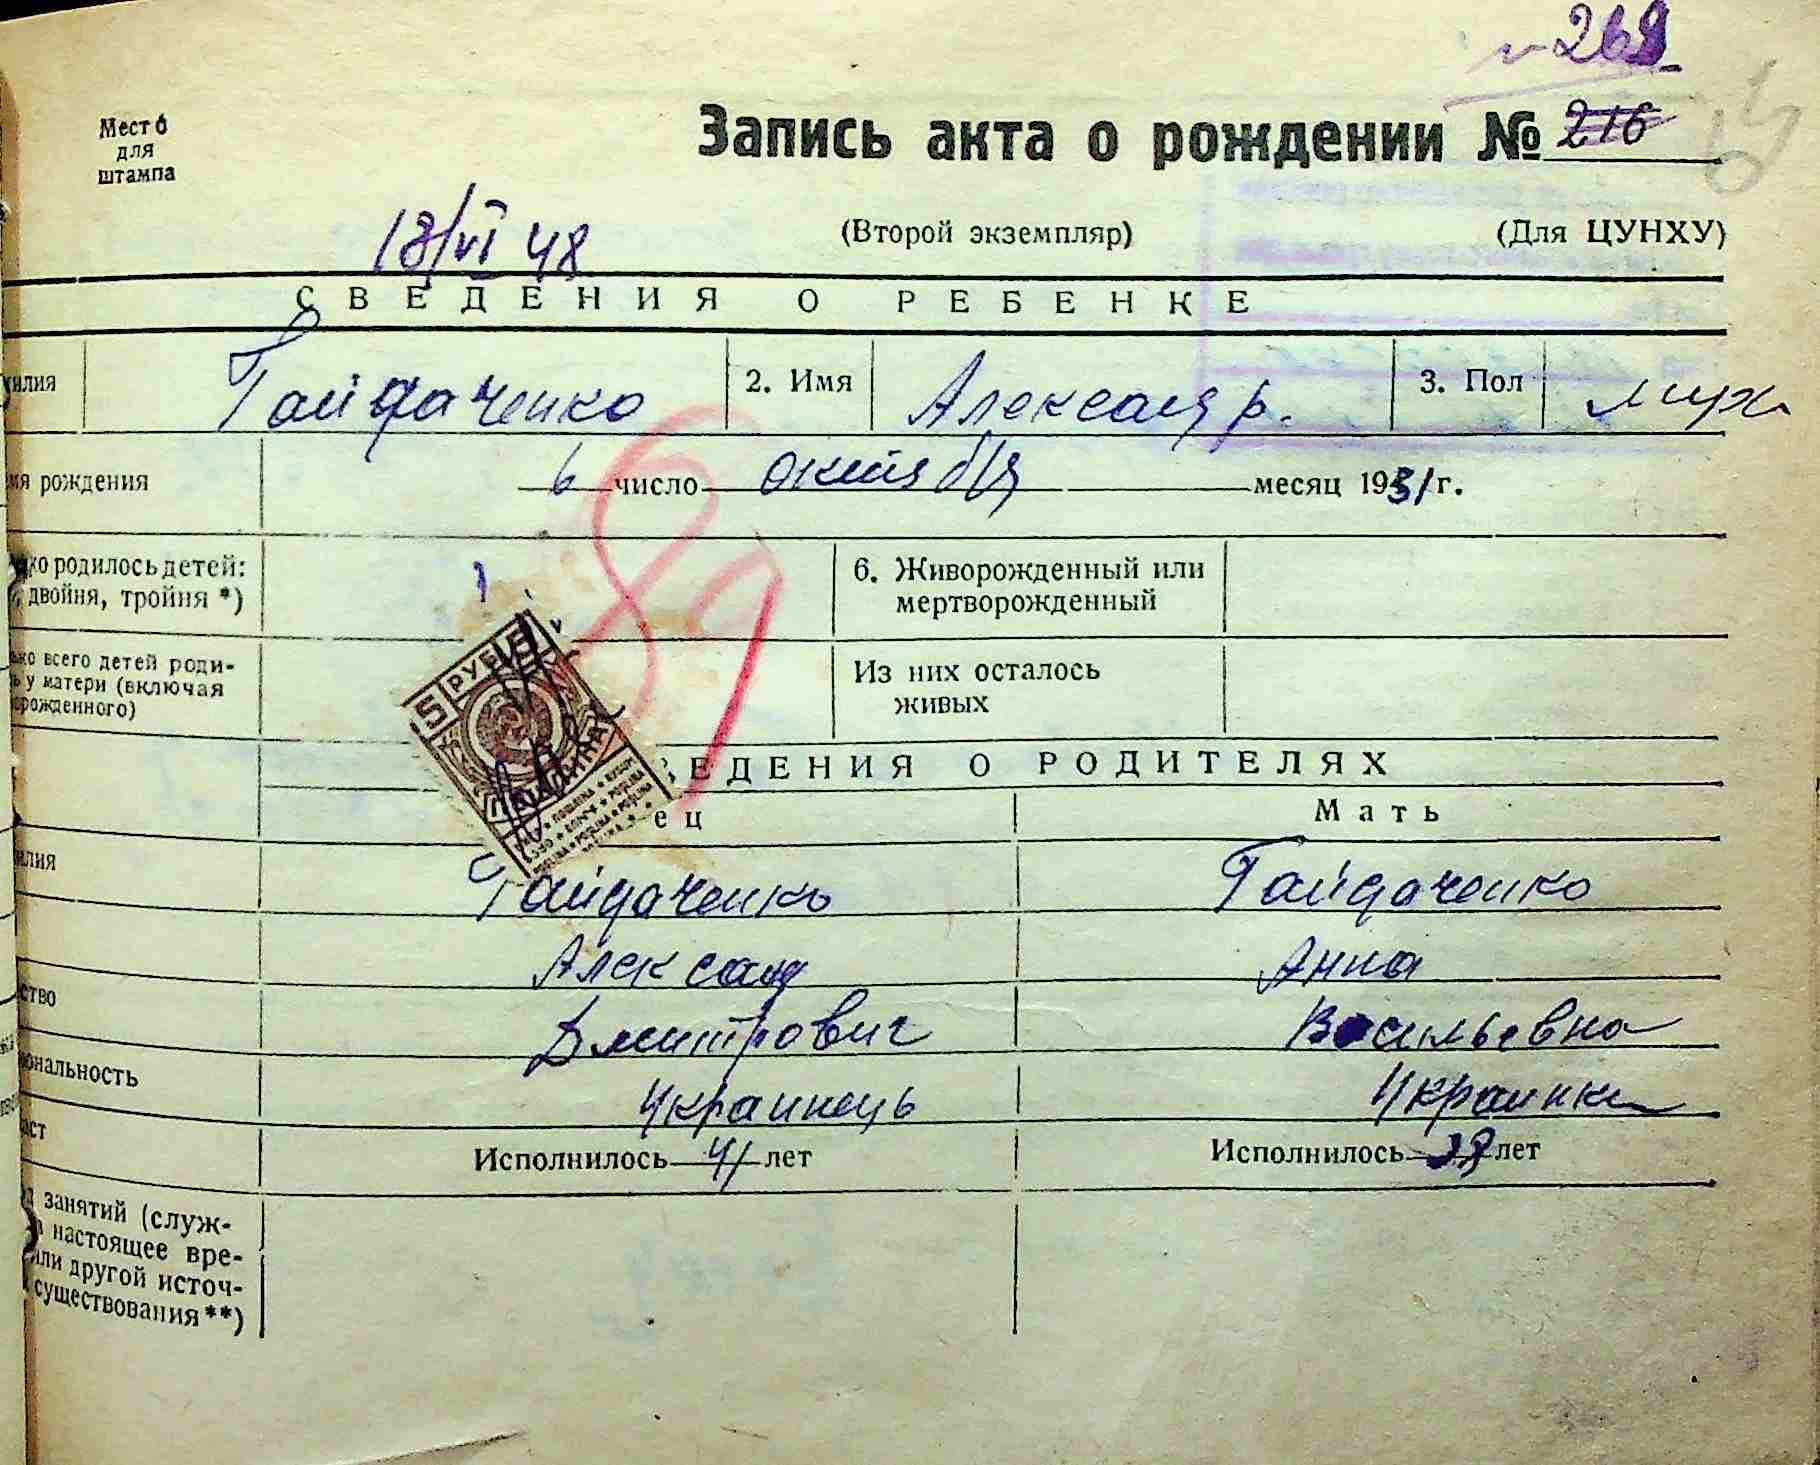 № 269
Место
для
штампа
Запись акта о рождении № 216
18/VI 48
(Второй экземпляр)
(Для ЦУНХУ)
СВЕДЕНИЯ О РЕБЕНКЕ
милия Гайдаченко 2. Имя Александр. 3. Пол муж
мя рождения 6 число октября месяц 1931 г.
ко родилось детей: 1 6. Живорожденный или
двойня, тройня *) мертворожденный
ько всего детей роди- Из них осталось
ь у матери (включая живых
орожденного)
5 РУБ 5
ПОШЛИНА
ВЕДЕНИЯ О РОДИТЕЛЯХ
ец Мать
илия Гайдаченко Гайдаченко
Александ Анна
ство Дмитрович Васильевна
ональность Украинець Украинка
аст Исполнилось 41 лет Исполнилось 38 лет
занятий (служ-
настоящее вре-
или другой источ-
существования **)
89